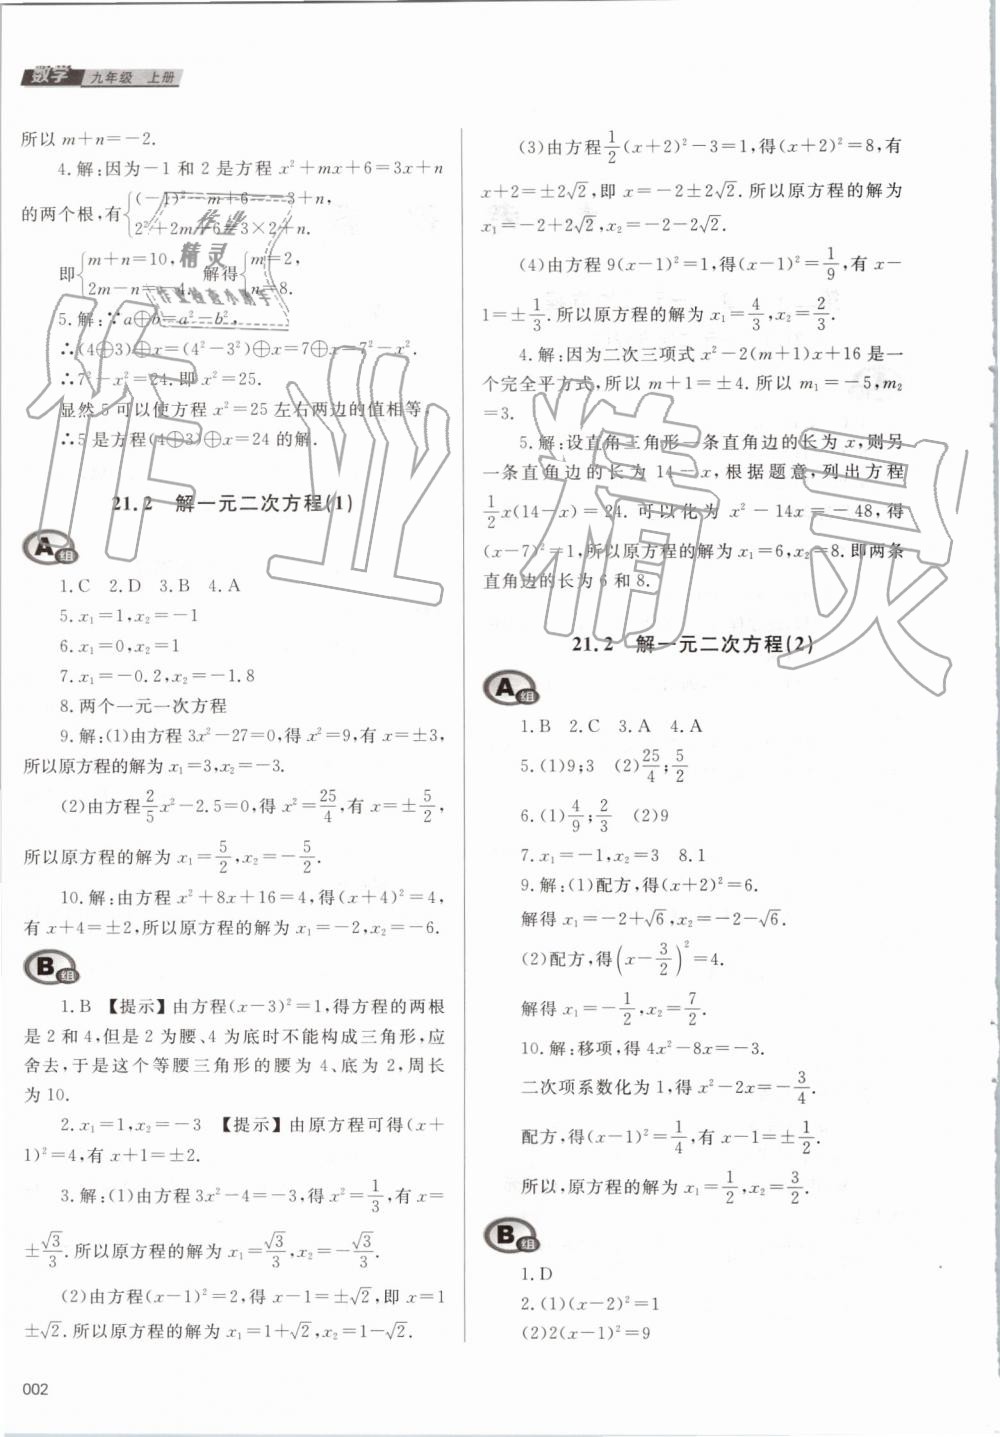 数学 九年级 上册
所以 m＋n＝－2.
4.解:因为－1 和 2 是方程 x²＋mx＋6＝3x＋n
的两个根,有{(－1)²－m＋6＝－3＋n,
2²＋2m＋6＝3×2＋n.
即{m＋n＝10, 解得{m＝2,
2m－n＝－4. n＝8.
5.解:∵a⊕b＝a²－b²,
∴(4⊕3)⊕x＝(4²－3²)⊕x＝7⊕x＝7²－x².
∴7²－x²＝24.即 x²＝25.
显然 5 可以使方程 x²＝25 左右两边的值相等,
∴5 是方程(4⊕3)⊕x＝24 的解.
21.2 解一元二次方程(1)
A组
1.C 2.D 3.B 4.A
5.x₁＝1,x₂＝－1
6.x₁＝0,x₂＝1
7.x₁＝－0.2,x₂＝－1.8
8.两个一元一次方程
9.解:(1)由方程 3x²－27＝0,得 x²＝9,有 x＝±3,
所以原方程的解为 x₁＝3,x₂＝－3.
(2)由方程 2/5 x²－2.5＝0,得 x²＝25/4,有 x＝±5/2,
所以原方程的解为 x₁＝5/2,x₂＝－5/2.
10.解:由方程 x²＋8x＋16＝4,得(x＋4)²＝4,
有 x＋4＝±2,所以原方程的解为 x₁＝－2,x₂＝－6.
B组
1.B 【提示】由方程(x－3)²＝1,得方程的两根
是 2 和 4,但是 2 为腰、4 为底时不能构成三角形,应
舍去,于是这个等腰三角形的腰为 4、底为 2,周长
为 10.
2.x₁＝1,x₂＝－3 【提示】由原方程可得(x＋
1)²＝4,有 x＋1＝±2.
3.解:(1)由方程 3x²－4＝－3,得 x²＝1/3,有 x＝
±√3/3.所以原方程的解为 x₁＝√3/3,x₂＝－√3/3.
(2)由方程(x－1)²＝2,得 x－1＝±√2,即 x＝1
±√2.所以原方程的解为 x₁＝1＋√2,x₂＝1－√2.
(3)由方程 1/2(x＋2)²－3＝1,得(x＋2)²＝8,有
x＋2＝±2√2,即 x＝－2±2√2.所以原方程的解为
x₁＝－2＋2√2,x₂＝－2－2√2.
(4)由方程 9(x－1)²＝1,得(x－1)²＝1/9,有 x－
1＝±1/3.所以原方程的解为 x₁＝4/3,x₂＝2/3.
4.解:因为二次三项式 x²－2(m＋1)x＋16 是一
个完全平方式,所以 m＋1＝±4.所以 m₁＝－5,m₂
＝3.
5.解:设直角三角形一条直角边的长为 x,则另
一条直角边的长为 14－x,根据题意,列出方程
1/2 x(14－x)＝24.可以化为 x²－14x＝－48,得
(x－7)²＝1,所以原方程的解为 x₁＝6,x₂＝8.即两条
直角边的长为 6 和 8.
21.2 解一元二次方程(2)
A组
1.B 2.C 3.A 4.A
5.(1)9;3 (2)25/4;5/2
6.(1)4/9;2/3 (2)9
7.x₁＝－1,x₂＝3 8.1
9.解:(1)配方,得(x＋2)²＝6.
解得 x₁＝－2＋√6,x₂＝－2－√6.
(2)配方,得(x－3/2)²＝4.
解得 x₁＝－1/2,x₂＝7/2.
10.解:移项,得 4x²－8x＝－3.
二次项系数化为 1,得 x²－2x＝－3/4.
配方,得(x－1)²＝1/4,有 x－1＝±1/2.
所以,原方程的解为 x₁＝1/2,x₂＝3/2.
B组
1.D
2.(1)(x－2)²＝1
(2)2(x－1)²＝9
002
作业精灵
作业
精灵
作业检查小助手